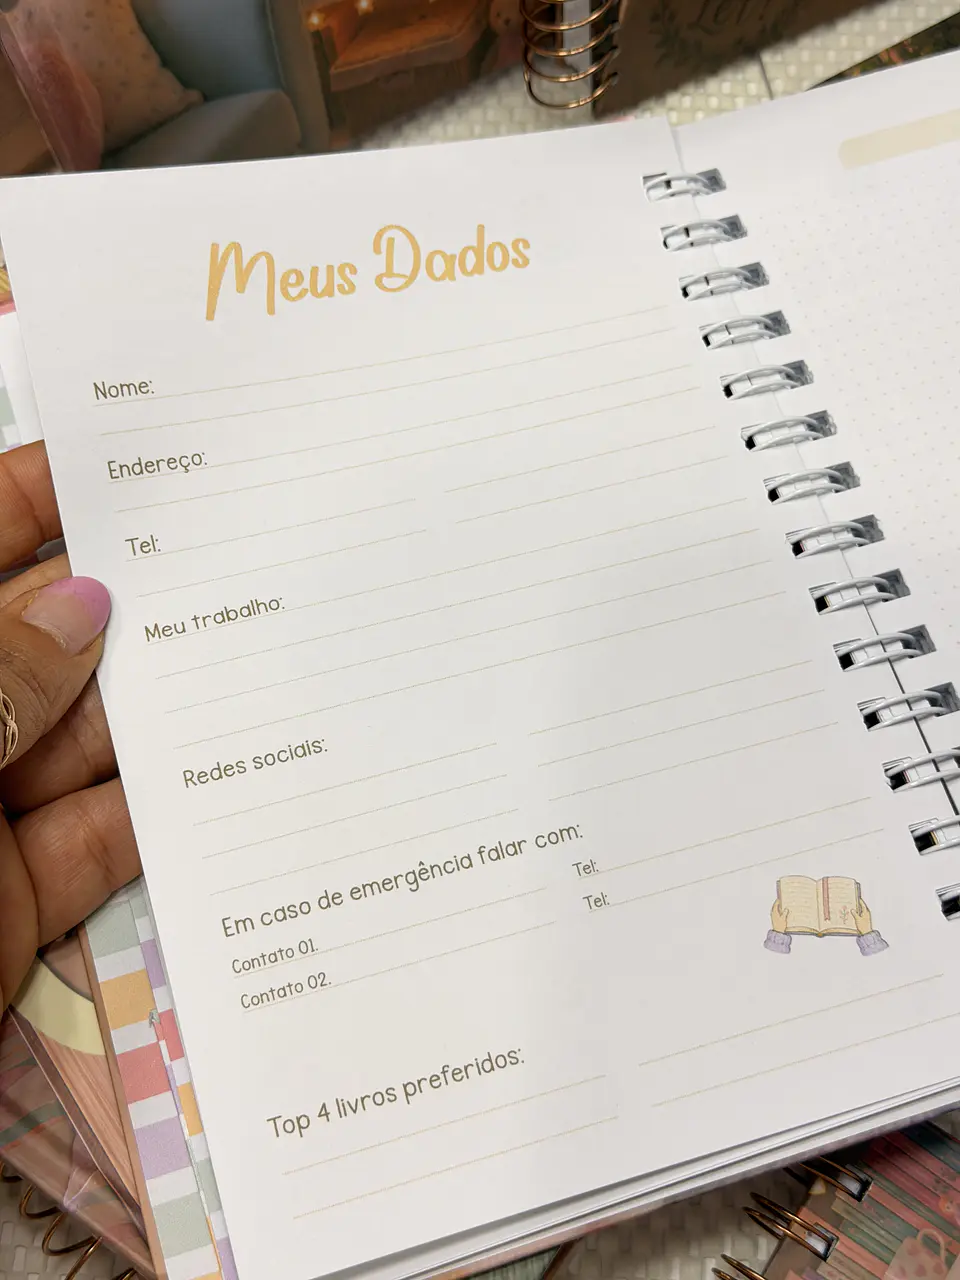 Meus Dados
Nome:
Endereço:
Tel:
Meu trabalho:
Redes sociais:
Em caso de emergência falar com:
Contato 01. Tel:
Contato 02. Tel:
Top 4 livros preferidos: